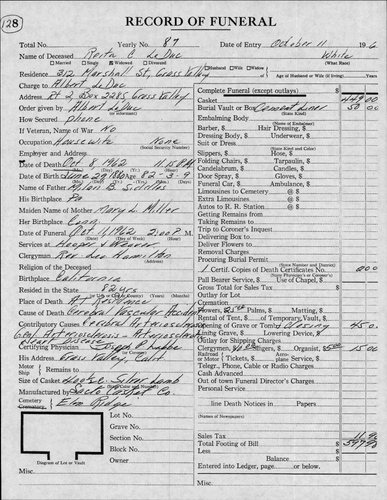 128
RECORD OF FUNERAL
Total No. Yearly No. 87 Date of Entry October 11 196
Name of Deceased C. LeDuc White
Married Single Widowed Divorced Husband Wife Widow (What Race)
Residence 212 Marshal St, Grass Valley Age of Husband or Wife (if living) Years
Charge to Albert LeDuc
Address Rt 2 Box 2285 Grass Valley
Order given by Albert LeDuc
(or informant)
How Secured phone
If Veteran, Name of War No
Occupation Housewife None
(Social Security Number)
Employer and Address
Date of Death Oct 8, 1962 11:50 A M
Date of Birth June 29 1880 Age 82-3-9
Name of Father B.
His Birthplace Pa
Maiden Name of Mother Mary L. Miller
Her Birthplace
Date of Funeral Oct 11, 1962 2:00 P M
Services at Hooper & Weaver
Clergyman Rev Leo Hamilton
Religion of the Deceased
Birthplace California
Resided in the State 82 yrs
Place of Death At Residence
Cause of Death Cerebral Vascular Accident
Contributory Causes Cerebral Arteriosclerosis
Arteriosclerosis - Arteriosclerotic
Heart Disease
Certifying Physician
His Address Grass Valley, Calif
Motor
Ship Remains to
Size of Casket Silver Lamb
Manufactured by Casket Co.
Cemetery
Crematory Elm Ridge
Lot No.
Grave No.
Section No.
Block No.
Owner
Diagram of Lot or Vault
Misc.
Complete Funeral (except outlays) $
Casket 449 00
Burial Vault or Box Cement Liner 50 00
(State Kind)
Embalming Body
(Name of Embalmer)
Barber, $ Hair Dressing, $
Dressing Body, $ Underwear, $
Suit or Dress
(State Kind and Color)
Slippers, $ Hose, $
Folding Chairs, $ Tarpaulin, $
Candelabrum, $ Candles, $
Door Spray, $ Gloves, $
Funeral Car, $ Ambulance, $
Limousines to Cemetery @ $
Extra Limousines @ $
Autos to R. R. Station @ $
Getting Remains from
Taking Remains to
Trip to Coroner's Inquest
Delivering Box to
Deliver Flowers to
Removal Charges
Procuring Burial Permit
1 Certif. Copies of Death Certificates No. 2 00
Pall Bearer Service, $ Use of Chapel, $
Gross Total for Sales Tax $
Outlay for Lot
Cremation
Flowers, $ Palms, $ Matting, $
Rental of Tent, $ of Temporary Vault, $
Opening of Grave or Tomb Closing 45 0
Lining Grave, $ Lowering Device, $
Outlay for Shipping Charges
Clergyman, Singers, Organist, 15 00
Railroad
Motor Tickets, $ Aeroplane Service, $
Telegr., Phone, Cable or Radio Charges
Cash Advanced
Out of town Funeral Director's Charges
Personal Service
line Death Notices in Papers
(Names of Newspapers)
Sales Tax
Total Footing of Bill $
Less
Balance $
Entered into Ledger, page or below.
Misc.